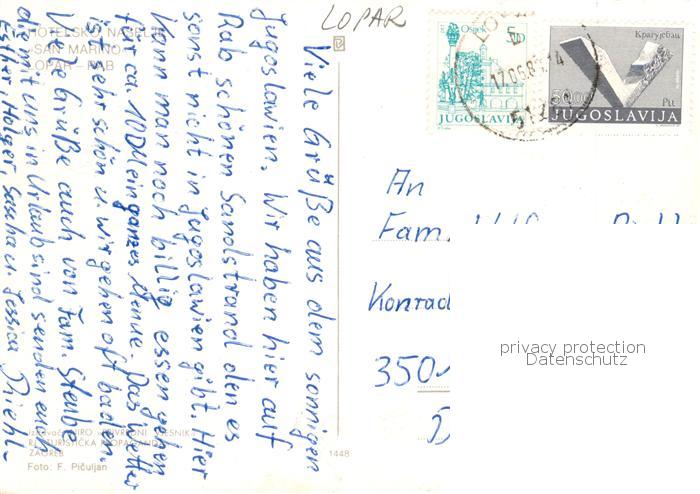 HOTELSKO NASELJE
»SAN MARINO«
LOPAR - RAB
LOPAR
Viele Grüße aus dem sonnigen
Jugoslawien. Wir haben hier auf
Rab schönen Sandstrand den es
sonst nicht in Jugoslawien gibt. Hier
kann man noch billig essen gehen
für ca. 10DM ein ganzes Menue. Das Wetter
ist sehr schön u. wir gehen oft baden.
Viele Grüße auch von Fam. Steube
die mit uns in Urlaub sind senden euch
Esther, Holger, Sascha u. Jessica Diehl
ZAGREB
Foto: F. Pičuljan
1448
Osijek
JUGOSLAVIJA
17.06.8
Крагујевац
50.00
JUGOSLAVIJA
An
Fam.
Konrad
350
privacy protection
Datenschutz